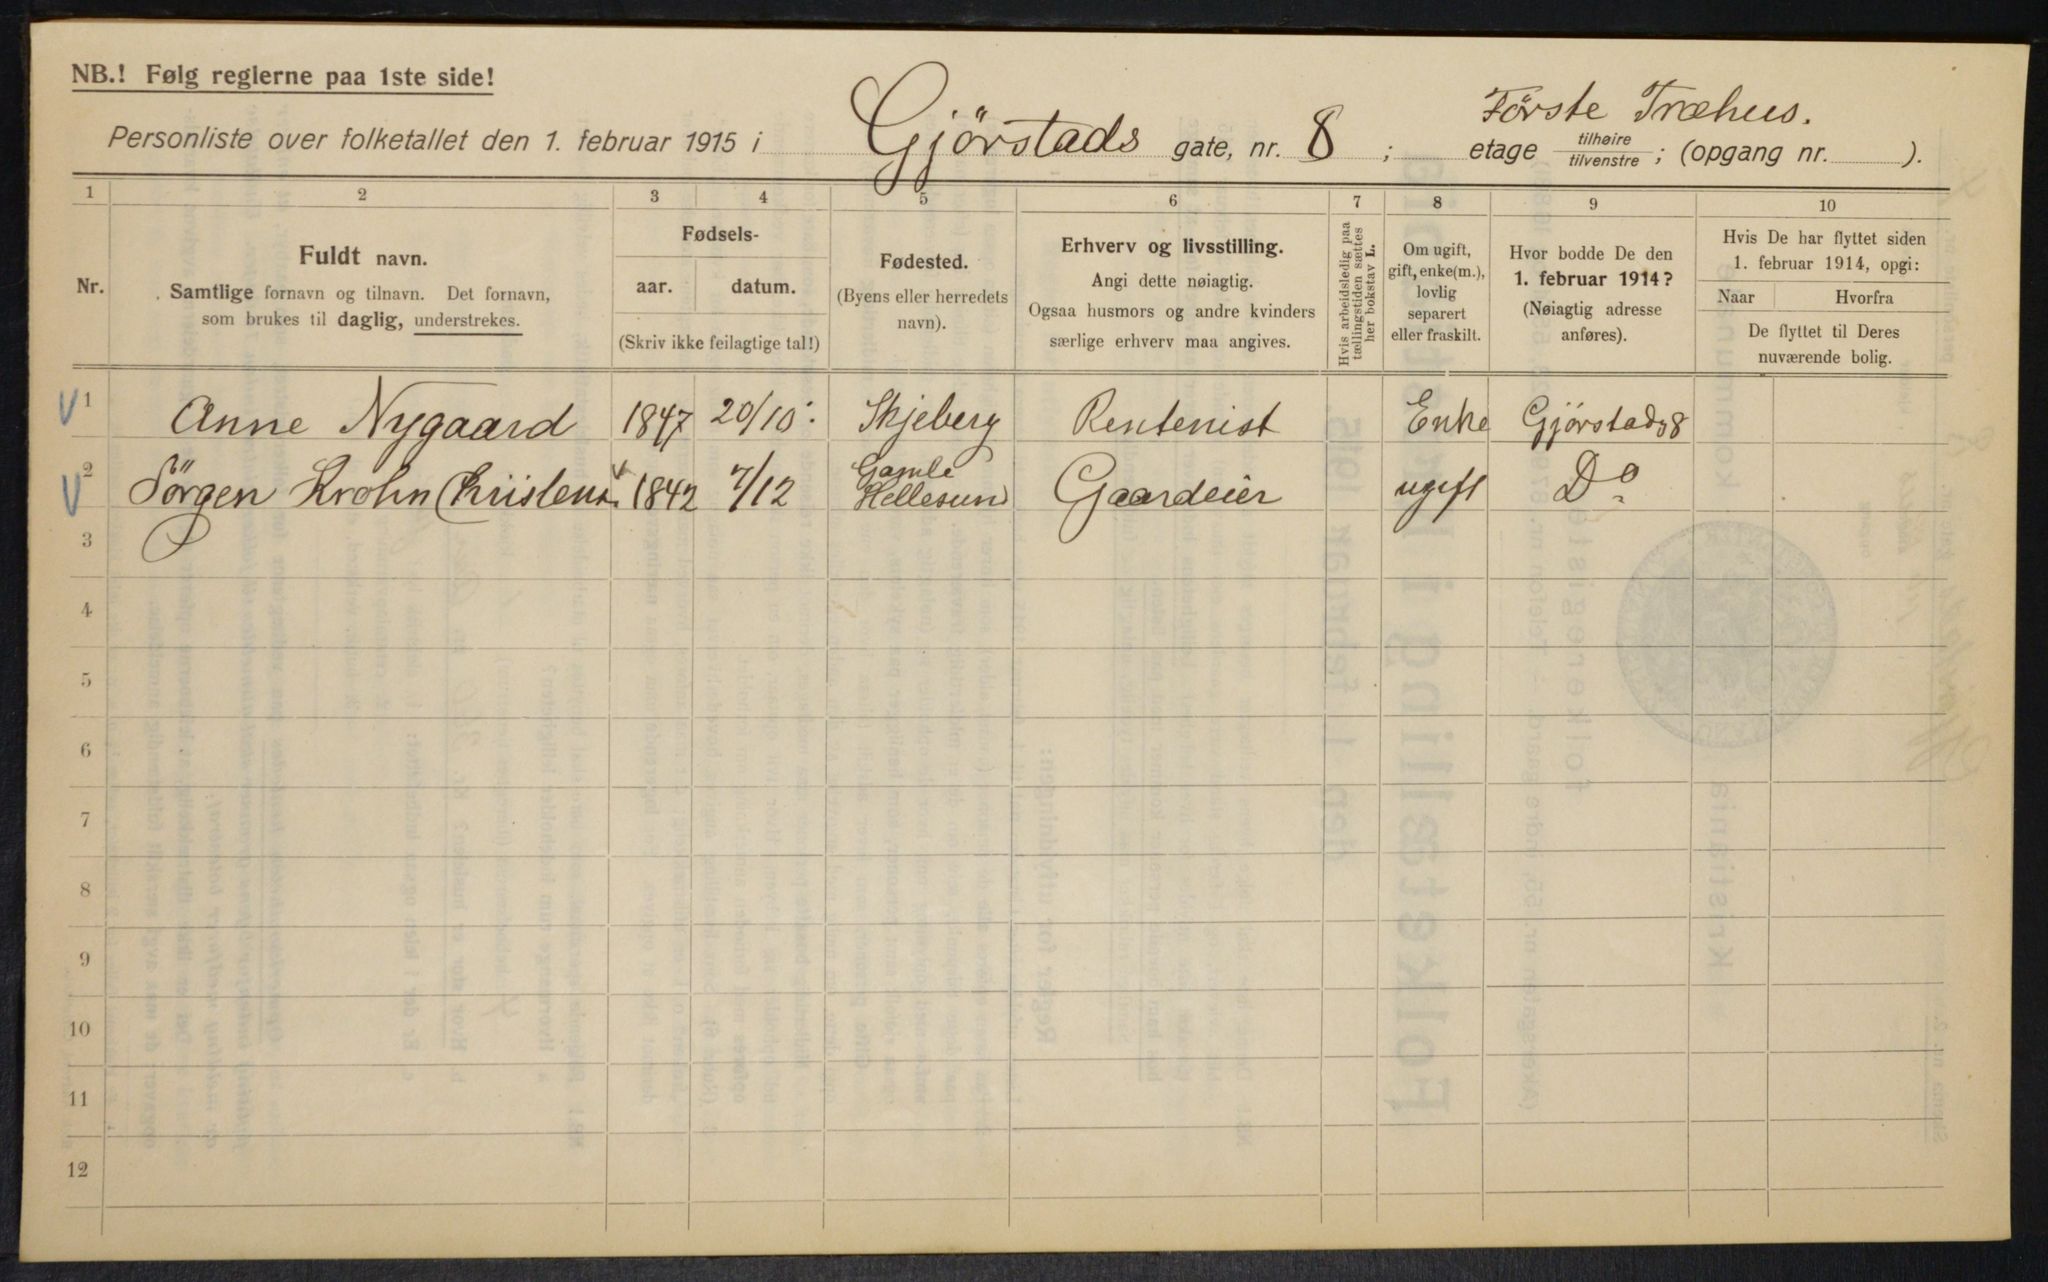 NB.! Følg reglerne paa 1ste side!
Første Træhus.
Personliste over folketallet den 1. februar 1915 i Gjørstads gate, nr. 8 ; etage tilhøire tilvenstre ; (opgang nr. ).
1 2 3 4 5 6 7 8 9 10
Nr.
Fuldt navn.
Samtlige fornavn og tilnavn. Det fornavn,
som brukes til daglig, understrekes.
Fødsels-
aar. datum.
(Skriv ikke feilagtige tal!)
Fødested.
(Byens eller herredets
navn).
Erhverv og livsstilling.
Angi dette nøiagtig.
Ogsaa husmors og andre kvinders
særlige erhverv maa angives.
Hvis arbeidsledig paa
tællingstiden sættes
her bokstav L.
Om ugift,
gift, enke(m.),
lovlig
separert
eller fraskilt.
Hvor bodde De den
1. februar 1914?
(Nøiagtig adresse
anføres).
Hvis De har flyttet siden
1. februar 1914, opgi:
Naar Hvorfra
De flyttet til Deres
nuværende bolig.
1 Anne Nygaard 1847 20/10. Skjeberg Rentenist Enke Gjørstads 8
2 Jörgen Krohn Christens. 1842 7/12 Gamle Hellesund Gaardeier ugift Do
3
4
5
6
7
8
9
10
11
12